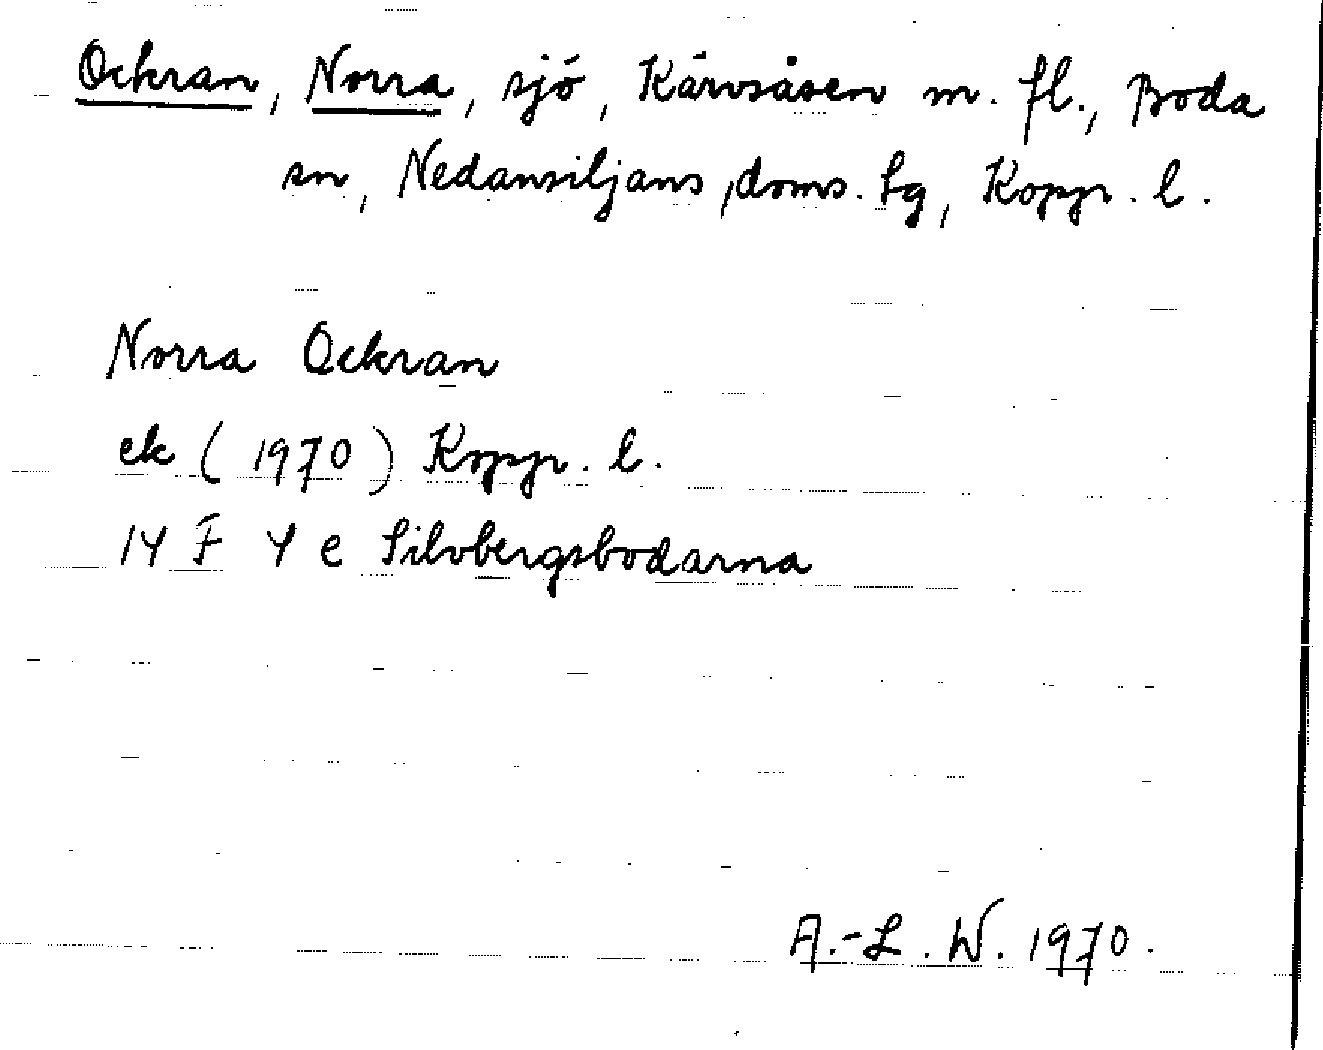 Ockran, Norra, sjö, Kärvsåsen m. fl., Boda
sn, Nedansiljans doms. tg, Kopp. l.
Norra Ockran
ek (1970) Kopp. l.
14 F 4 e Silvbergsbodarna
A.-L. W. 1970.